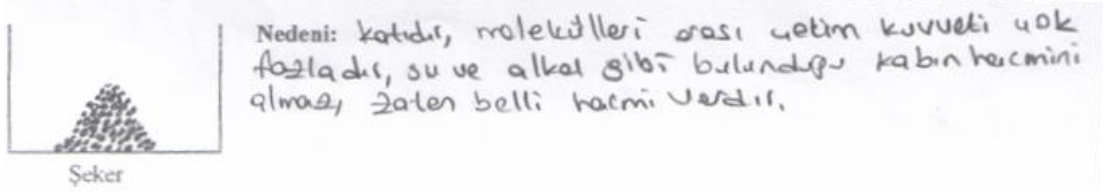 Nedeni: katıdır, molekülleri arası çekim kuvveti çok
fazladır, su ve alkol gibi bulunduğu kabın hacmini
almaz, zaten belli hacmi vardır.
Şeker